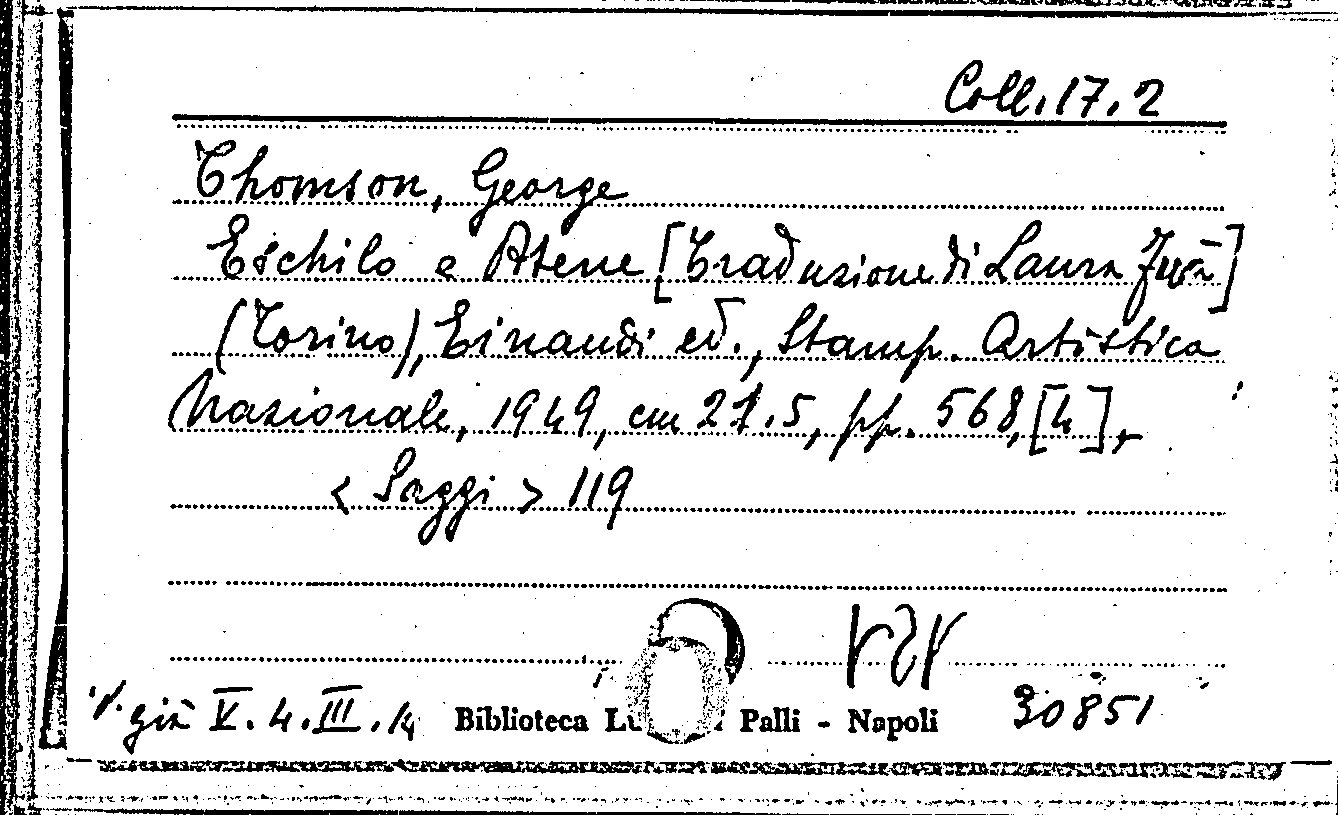 Coll. 17.2
Thomson, George
Eschilo e Atene [Traduzione di Laura
(Torino), Einaudi ed., Stamp. Artistica
Nazionale, 1949, cm 21.5, pp. 568, [4],
< Saggi > 119
già V. 4. III. 14 Biblioteca Palli - Napoli 30851